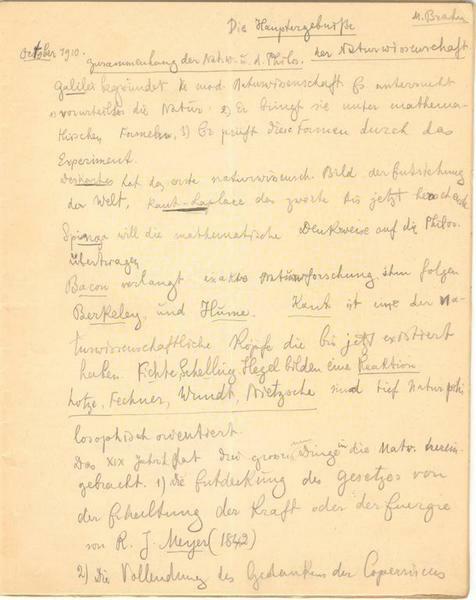 Die Hauptergebniße
der Naturwissenschaft
October 1910.
Zusammenhang der Natw. u. d. Philos.
Galilei begründet die mod. Naturwissenschaft. Er untersucht
vorurteilslos die Natur. 2) Er bringt sie unter mathema-
tischen Formeln, 3) Er prüft diese Formen durch das
Experiment.
Deskartes hat das erste naturwissensch. Bild der Entstehung
der Welt, Kant-Laplace das zweite bis jetzt herrschende
Spinoza will die mathematische Denkweise auf die Philos.
übertragen
Bacon verlangt exakte Naturforschung, ihm folgen
Berkeley und Hume. Kant ist einer der na-
turwissenschaftliche Köpfe die bis jetzt existiert
haben. Fichte, Schelling, Hegel bilden eine Reaktion
Lotze, Fechner, Wundt, Nietzsche sind tief Naturphi
losophisch orientiert.
Das XIX Jahrh. hat drei grosse Dinge in die Natw. herein-
gebracht. 1) die Entdeckung des Gesetzes von
der Erhaltung der Kraft oder der Energie
von R. J. Meyer (1842)
2) Die Vollendung des Gedankens der Copernicus